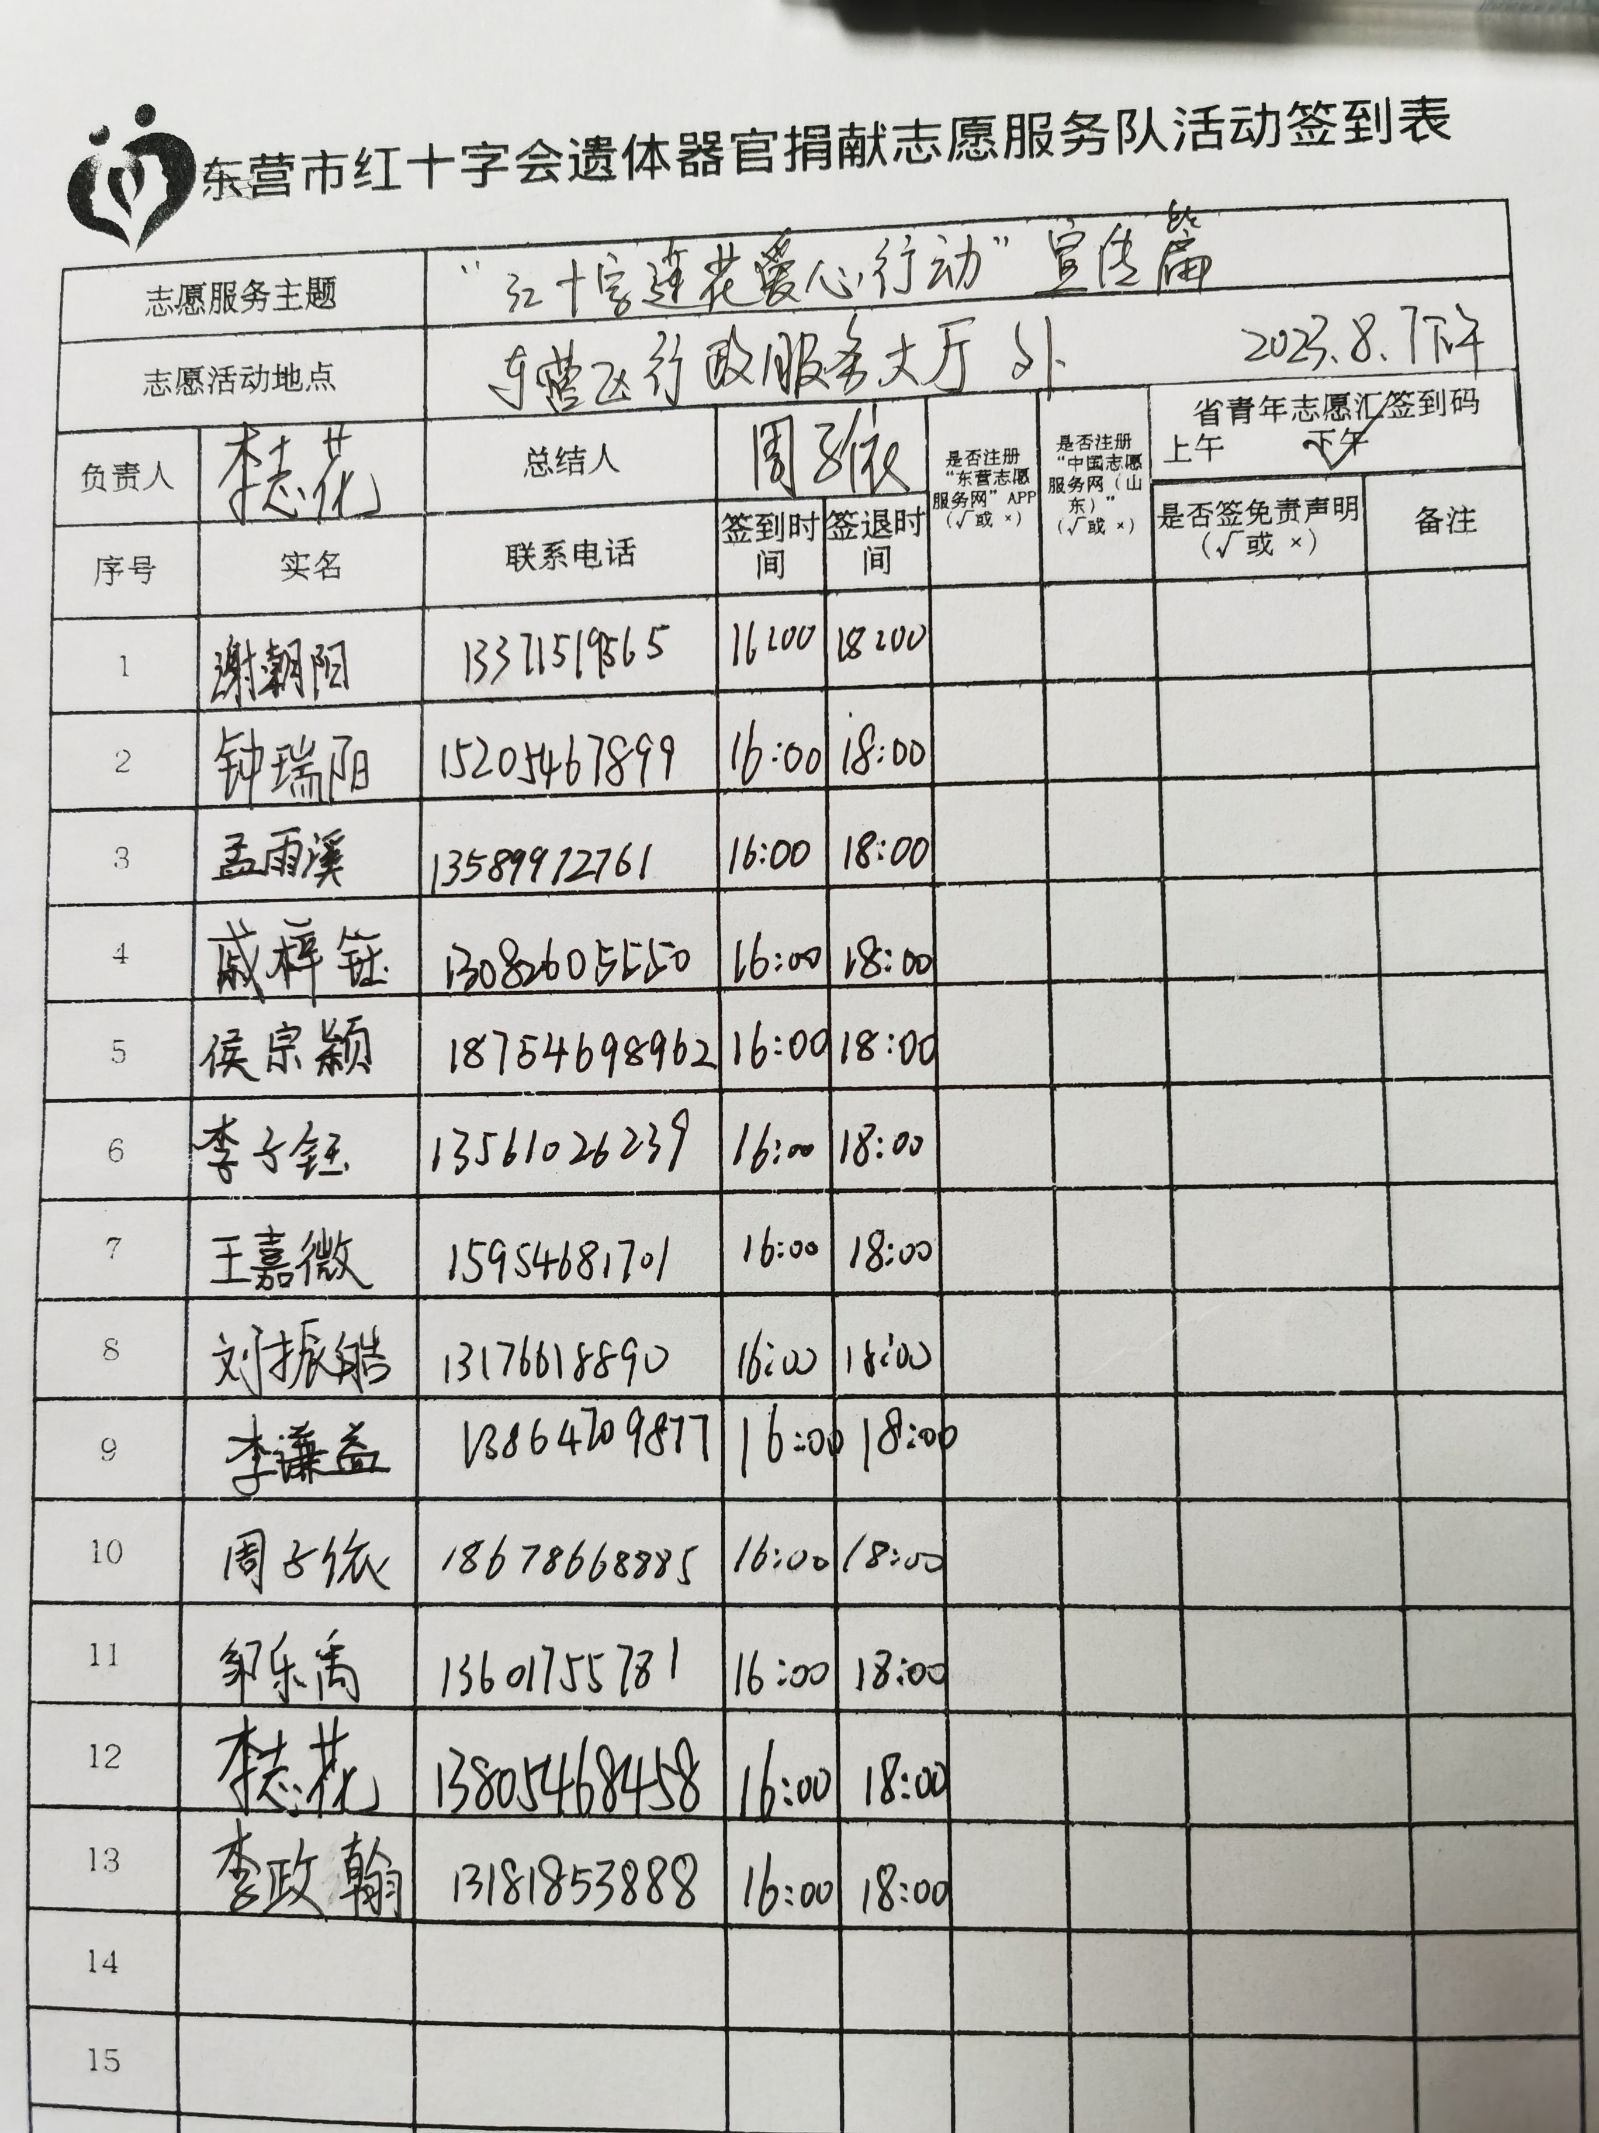 东营市红十字会遗体器官捐献志愿服务队活动签到表
志愿服务主题 “红十字莲花爱心行动”宣传篇
志愿活动地点 东营区行政服务大厅外 2023.8.1下午
负责人 李志花 总结人 周子依 是否注册“东营志愿服务网”APP(√或 ×) 是否注册“中国志愿服务网(山东)”(√或 ×) 省青年志愿汇签到码 上午 下午 √
序号 实名 联系电话 签到时间 签退时间 是否签免责声明(√或 ×) 备注
1 谢朝阳 13371519565 16:00 18:00
2 钟瑞阳 15205467899 16:00 18:00
3 孟雨溪 13589972761 16:00 18:00
4 戚梓钰 13082605550 16:00 18:00
5 侯宗颖 18754698962 16:00 18:00
6 李子钰 13561026239 16:00 18:00
7 王嘉微 15954681701 16:00 18:00
8 刘振皓 13176618890 16:00 18:00
9 李谦益 13864709877 16:00 18:00
10 周子依 18678668885 16:00 18:00
11 邹乐禹 13601755781 16:00 18:00
12 李志花 13805468458 16:00 18:00
13 李政翰 13181853888 16:00 18:00
14
15